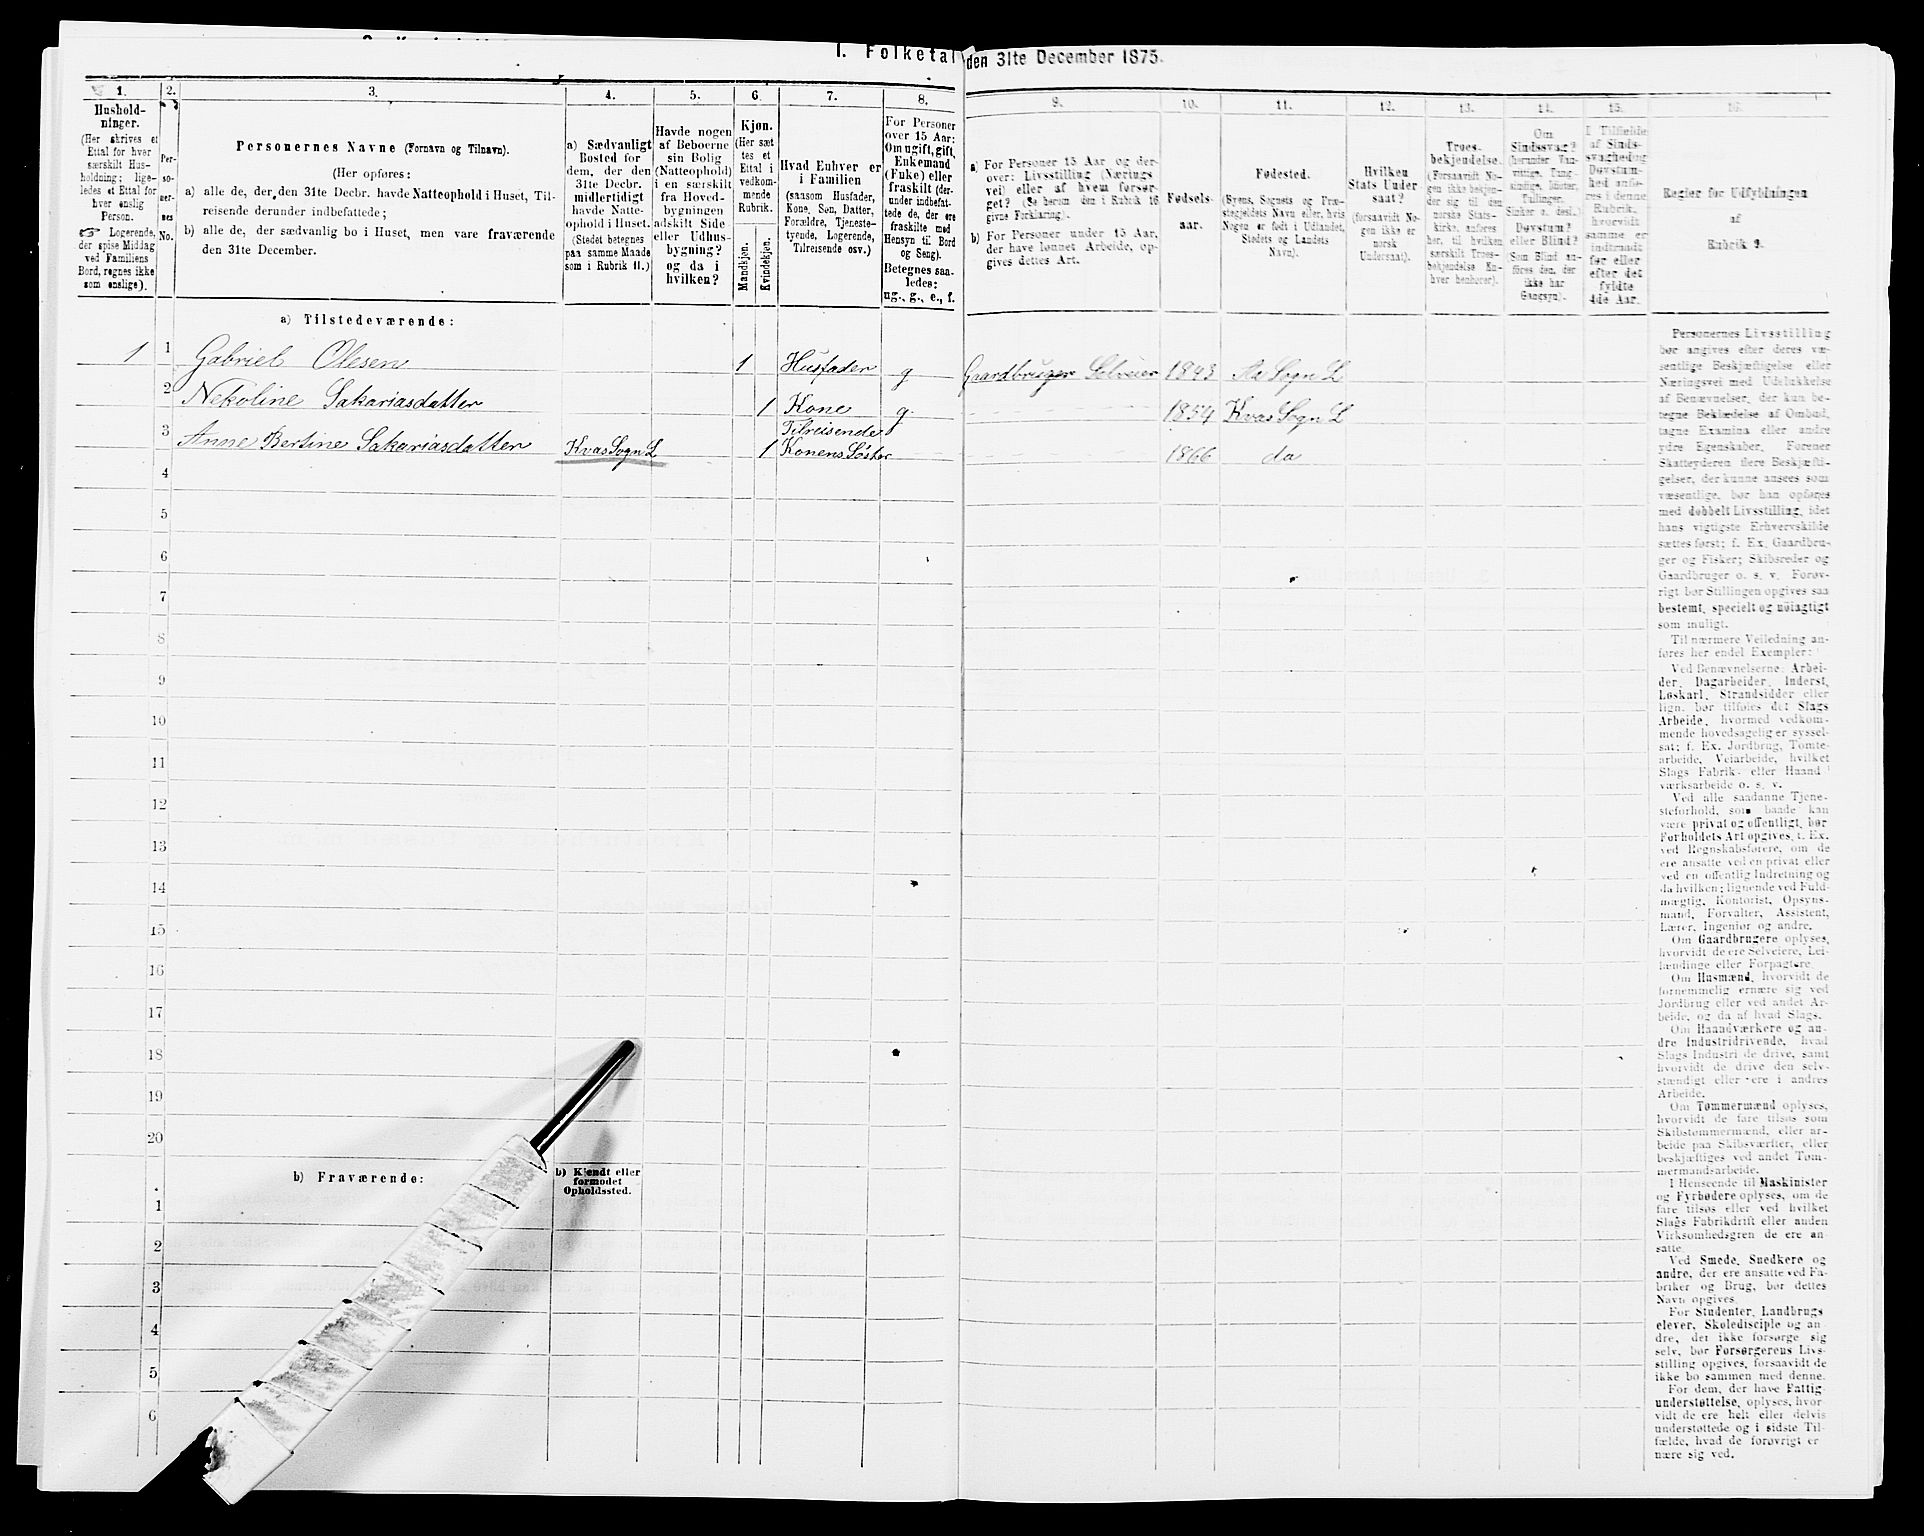 I. Folketal den 31te December 1875.
1.
2.
3.
4.
5.
6.
7.
8.
9.
10.
11.
12.
13.
14.
15.
16.
Hushold-
ninger.
(Her skrives et
Ettal for hver
særskilt Hus-
holdning; lige-
ledes et Ettal for
hver enslig
Person.
☞ Logerende,
der spise Middag
ved Familiens
Bord, regnes ikke
som enslige).
Per-
so-
ner-
nes
No.
Personernes Navne (Fornavn og Tilnavn).
(Her opføres:
a) alle de, der den 31te Decbr. havde Natteophold i Huset, Til-
reisende derunder indbefattede;
b) alle de, der sædvanlig bo i Huset, men vare fraværende
den 31te December.
a) Sædvanligt
Bosted for
dem, der den
31te Decbr.
midlertidigt
havde Natte-
ophold i Huset.
(Stedet betegnes
paa samme Maade
som i Rubrik 11.)
Havde nogen
af Beboerne
sin Bolig
(Natteophold)
i en særskilt
fra Hoved-
bygningen
adskilt Side
eller Udhus-
bygning?
og da i
hvilken?
Kjøn.
(Her sæt
tes et
Ettal i
vedkom-
mende
Rubrik.
Mandkjøn.
Kvindekjøn.
Hvad Enhver er
i Familien
(saasom Husfader,
Kone, Søn, Datter,
Forældre, Tjeneste-
tyende, Logerende,
Tilreisende osv.)
For Personer
over 15 Aar:
Om ugift, gift,
Enkemand
(Enke) eller
fraskilt (der-
under indbefat-
tede de, der ere
fraskilte med
Hensyn til Bord
og Seng).
Betegnes saa-
ledes:
ug., g., e., f.
a) For Personer 15 Aar og der-
over: Livsstilling (Nærings
vei) eller af hvem forsør-
get? (Se herom den i Rubrik 16
givne Forklaring).
b) For Personer under 15 Aar,
der have lønnet Arbeide, op-
gives dettes Art.
Fødsels-
aar.
Fødested.
(Byens, Sognets og Præ-
stegjeldets Navn eller, hvis
Nogen er født i Udlandet,
Stedets og Landets
Navn).
Hvilken
Stats Under
saat?
(forsaavidt No-
gen ikke er
norsk
Undersaat).
Troes-
bekjendelse.
(Forsaavidt No-
gen ikke bekjen-
der sig til den
norske Stats-
kirke, anføres
her, til hvilken
særskilt Troes-
bekjendelse En-
hver henhører).
Om
Sindssvag?
(herunder Van-
vittige, Tung-
sindige, Idioter,
Tullinger,
Sinker o. desl.)
Døvstum?
eller Blind?
(Som Blind an-
føres den, der
ikke har
Gangsyn).
I Tilfælde
af Sinds-
svaghed og
Døvstum-
hed anfø-
res i denne
Rubrik,
hvorvidt
samme er
indtraadt
før eller
efter det
fyldte
4de Aar.
Regler for Udfyldningen
af
Rubrik 9.
a) Tilstedeværende:
1 1 Gabriel Olesen 1 Husfader g Gaardbruger Selveier 1843 Aa Sogn L
2 Nekoline Sakariasdatter 1 Kone g. 1854 Kvas Sogn L
Tilreisende
3 Anne Bertine Sakariasdatter Kvas Sogn L 1 Konens Søster 1866 da
4
5
6
7
8
9
10
11
12
13
14
15
16
17
18
19
20
b) Fraværende:
b) Kjendt eller
formodet
Opholdssted.
1
2
3
4
5
6
Personernes Livsstilling
bør angives efter deres væ-
sentlige Beskjæftigelse eller
Næringsvei med Udelukkelse
af Benævnelser, der kun be-
tegne Beklædelse af Ombud,
tagne Examina eller andre
ydre Egenskaber. Forener
Skatteyderen flere Beskjæfti-
gelser, der kunne ansees som
væsentlige, bør han opføres
med dobbelt Livsstilling, idet
hans vigtigste Erhvervskilde
sættes først; f. Ex. Gaardbru-
ger og Fisker; Skibsreder og
Gaardbruger o. s. v. Forøv-
rigt bør Stillingen opgives saa
bestemt, specielt og nøiagtigt
som muligt.
Til nærmere Veiledning an-
føres her endel Exempler:
Ved Benævnelserne Arbei-
der, Dagarbeider, Inderst,
Løskarl, Strandsidder eller
lign. bør tilføies det Slags
Arbeide, hvormed vedkom-
mende hovedsagelig er syssel-
sat; f. Ex. Jordbrug, Tomte-
arbeide, Veiarbeide, hvilket
Slags Fabrik- eller Haand
værksarbeide o. s. v.
Ved alle saadanne Tjene-
steforhold, som baade kan
være privat og offentligt, bør
Forholdets Art opgives, t. Ex.
ved Regnskabsførere, om de
ere ansatte ved en privat eller
ved en offentlig Indretning og
da hvilken; lignende ved Fuld-
mægtig, Kontorist, Opsyns-
mand, Forvalter, Assistent,
Lærer, Ingeniør og andre.
Om Gaardbrugere oplyses,
hvorvidt de ere Selveiere, Lei-
lændinge eller Forpagtere.
Om Husmænd, hvorvidt de
fornemmelig ernære sig ved
Jordbrug eller ved andet Ar-
beide, og da af hvad Slags.
Om Haandværkere og an-
dre Industridrivende, hvad
Slags Industri de drive, samt
hvorvidt de drive den selv-
stændigt eller ere i andres
Arbeide.
Om Tømmermænd oplyses,
hvorvidt de fare tilsøs som
Skibstømmermænd, eller ar-
beide paa Skibsværfter, eller
beskjæftiges ved andet Tøm-
mermandsarbeide.
I Henseende til Maskinister
og Fyrbødere oplyses, om de
fare tilsøs eller ved hvilket
Slags Fabrikdrift eller anden
Virksomhedsgren de ere an-
satte.
Ved Smede, Snedkere og
andre, der ere ansatte ved Fa-
briker og Brug, bør dettes
Navn opgives.
For Studenter, Landbrugs
elever, Skoledisciple og an
dre, der ikke forsørge sig
selv, bør Forsørgerens Livs-
stilling opgives, forsaavidt de
ikke bo sammen med denne.
For dem, der have Fattig-
understøttelse, oplyses, hvor
vidt de ere helt eller delvis
understøttede og i sidste Til-
fælde, hvad de forøvrigt er
nære sig ved.